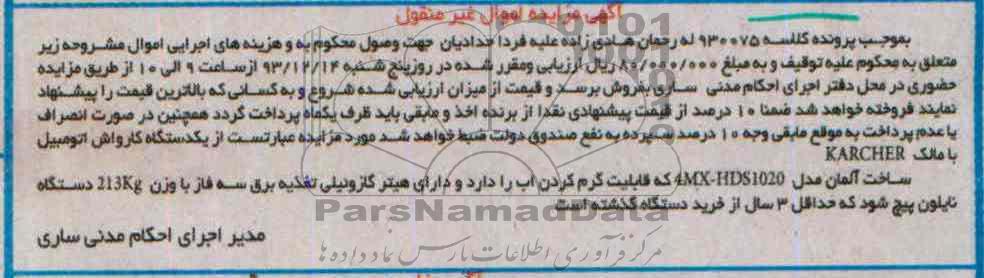 آگهی مزایده اموال غیر منقول
بموجب پرونده کلاسه ۹۳۰۰۷۵ له رحمان هادی زاده علیه فردا حدادیان جهت وصول محکوم به و هزینه های اجرایی اموال مشروحه زیر
متعلق به محکوم علیه توقیف و به مبلغ ۸۰/۰۰۰/۰۰۰ ریال ارزیابی ومقرر شده در روزپنج شنبه ۹۳/۱۲/۱۴ ازساعت ۹ الی ۱۰ از طریق مزایده
حضوری در محل دفتر اجرای احکام مدنی ساری بفروش برسد و قیمت از میزان ارزیابی شده شروع و به کسانی که بالاترین قیمت را پیشنهاد
نمایند فروخته خواهد شد ضمنا ۱۰ درصد از قیمت پیشنهادی نقدا از برنده اخذ و مابقی باید ظرف یکماه پرداخت گردد همچنین در صورت انصراف
یا عدم پرداخت به موقع مابقی وجه ۱۰ درصد سپرده به نفع صندوق دولت ضبط خواهد شد مورد مزایده عبارتست از یکدستگاه کارواش اتومبیل
با مالک KARCHER
ساخت آلمان مدل 4MX-HDS1020 که قابلیت گرم کردن اب را دارد و دارای هیتر گازوئیلی تغذیه برق سه فاز با وزن 213Kg دستگاه
نایلون پیچ شود که حداقل ۳ سال از خرید دستگاه گذشته است
ParsNamadData
مرکز فرآوری اطلاعات پارس نماد داده ها
مدیر اجرای احکام مدنی ساری